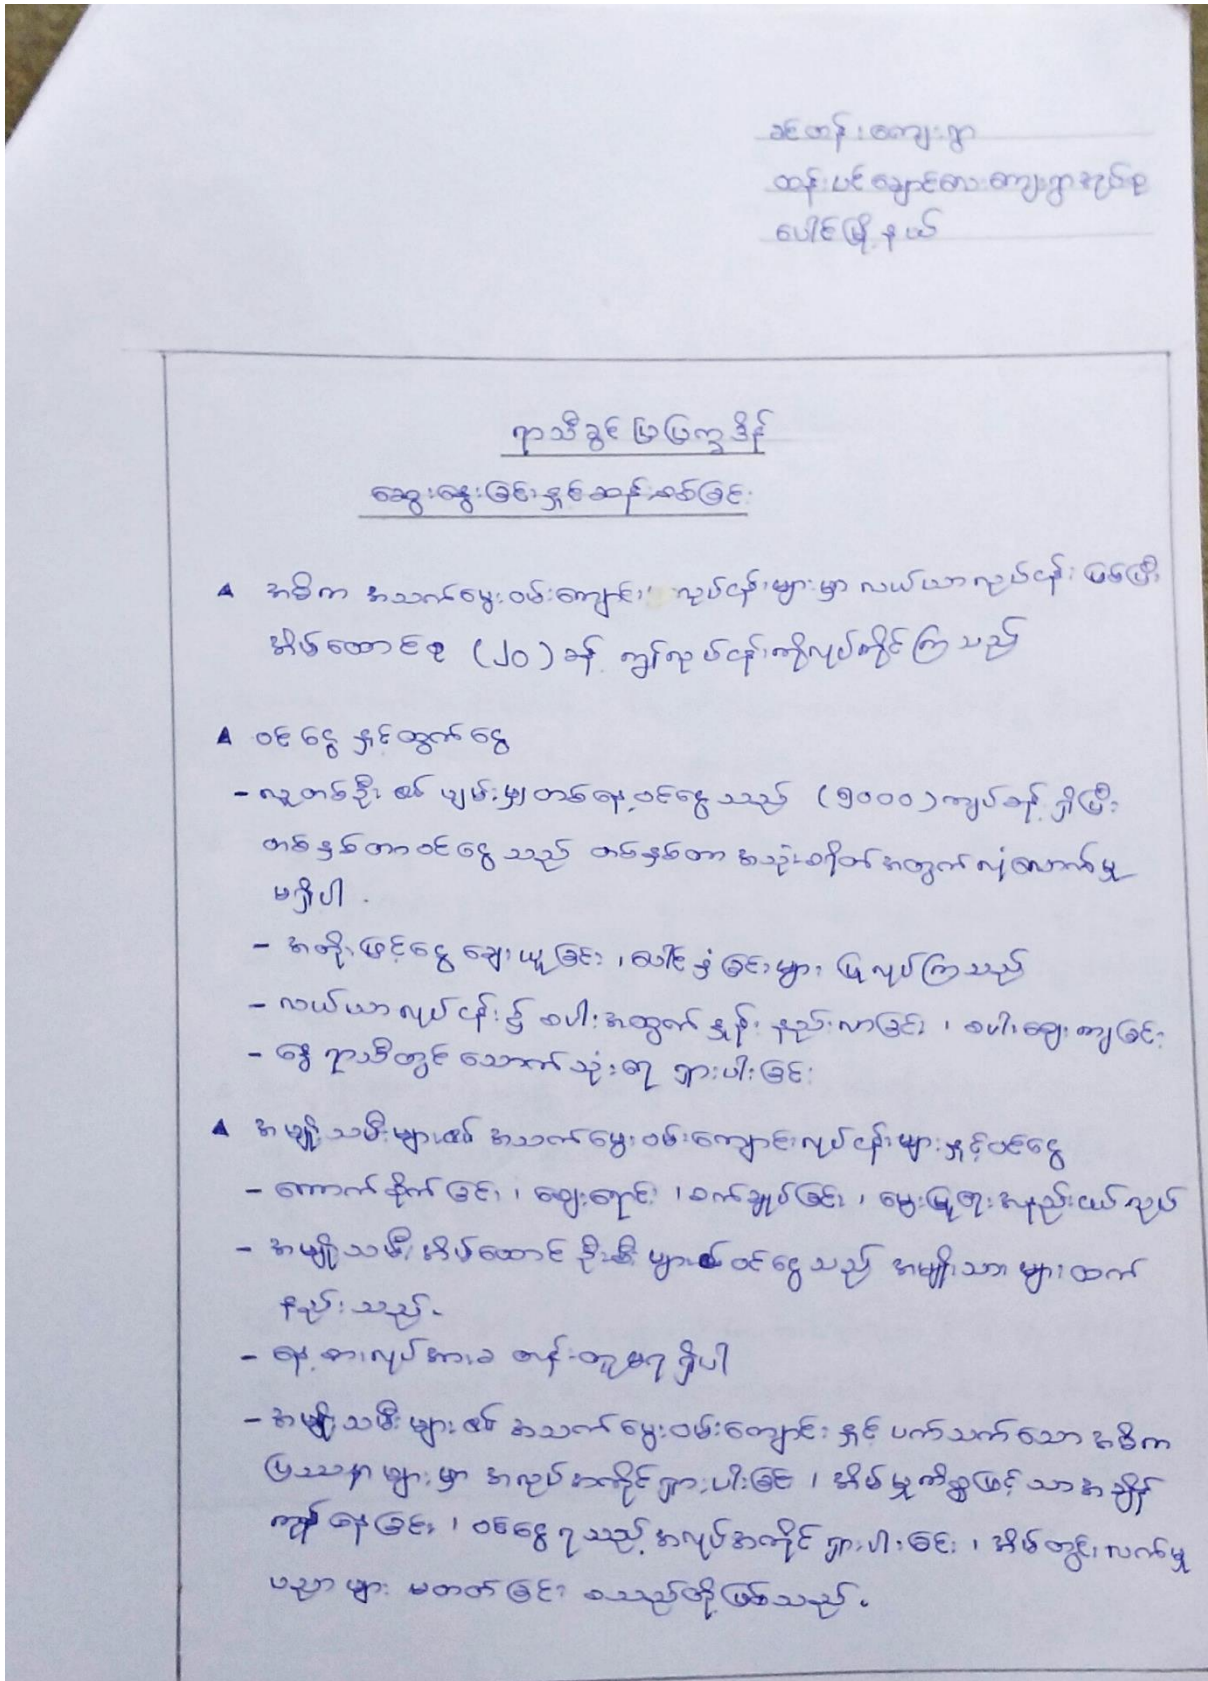 ခင်တန်းကျေးရွာ
ထန်းပင်ချောင်လေးကျေးရွာအုပ်စု
ပေါင်မြို့နယ်
ရာသီခွင်ပြပြက္ခဒိန်
ဆွေးနွေးခြင်းနှင့်ဆန်းစစ်ခြင်း
▲ အဓိက အသက်မွေးဝမ်းကျောင်း လုပ်ငန်းများမှာ လယ်ယာလုပ်ငန်း ဖြစ်ပြီး
အိမ်ထောင်စု (၂၀) ခန့် ကျွန်းလုပ်ငန်းကိုလုပ်ကိုင်ကြသည်
▲ ဝင်ငွေ နှင့်ထွက်ငွေ
- လူတစ်ဦး ၏ ပျမ်းမျှတစ်နေ့ဝင်ငွေသည် (၅၀၀၀) ကျပ်ခန့် ရှိပြီး
တစ်နှစ်တာဝင်ငွေသည် တစ်နှစ်တာ အသုံးစရိတ်အတွက် လုံလောက်မှု
မရှိပါ.
- အတိုးဖြင့်ငွေ ချေးယူခြင်း ၊ ပေါင်နှံခြင်းများ ပြုလုပ်ကြသည်
- လယ်ယာလုပ်ငန်း၌ စပါးအထွက်နှုန်း နည်းလာခြင်း ၊ စပါးဈေးကျခြင်း
- နွေရာသီတွင် သောက်သုံးရေ ရှားပါးခြင်း
▲ အမျိုးသမီးများ၏ အသက်မွေးဝမ်းကျောင်းလုပ်ငန်းများနှင့်ဝင်ငွေ
- ကောက်စိုက်ခြင်း ၊ ဈေးရောင်း ၊ စက်ချုပ်ခြင်း ၊ မွေးမြူရေးအနည်းငယ်လုပ်
- အမျိုးသမီးအိမ်ထောင်ဦးစီးများ၏ ဝင်ငွေသည် အမျိုးသားများထက်
နည်းသည်.
- နေ့စားလုပ်အားခ တန်းတူမရရှိပါ
- အမျိုးသမီးများ၏ အသက်မွေးဝမ်းကျောင်းနှင့် ပက်သက်သော အဓိက
ပြဿနာများမှာ အလုပ်အကိုင်ရှားပါးခြင်း ၊ အိမ်မှုကိစ္စဖြင့်သာအချိန်
ကုန်နေခြင်း ၊ ဝင်ငွေရသည့်အလုပ်အကိုင်ရှားပါးခြင်း ၊ အိမ်တွင်းလက်မှု
ပညာများ မတတ်ခြင်း စသည်တို့ဖြစ်သည်.